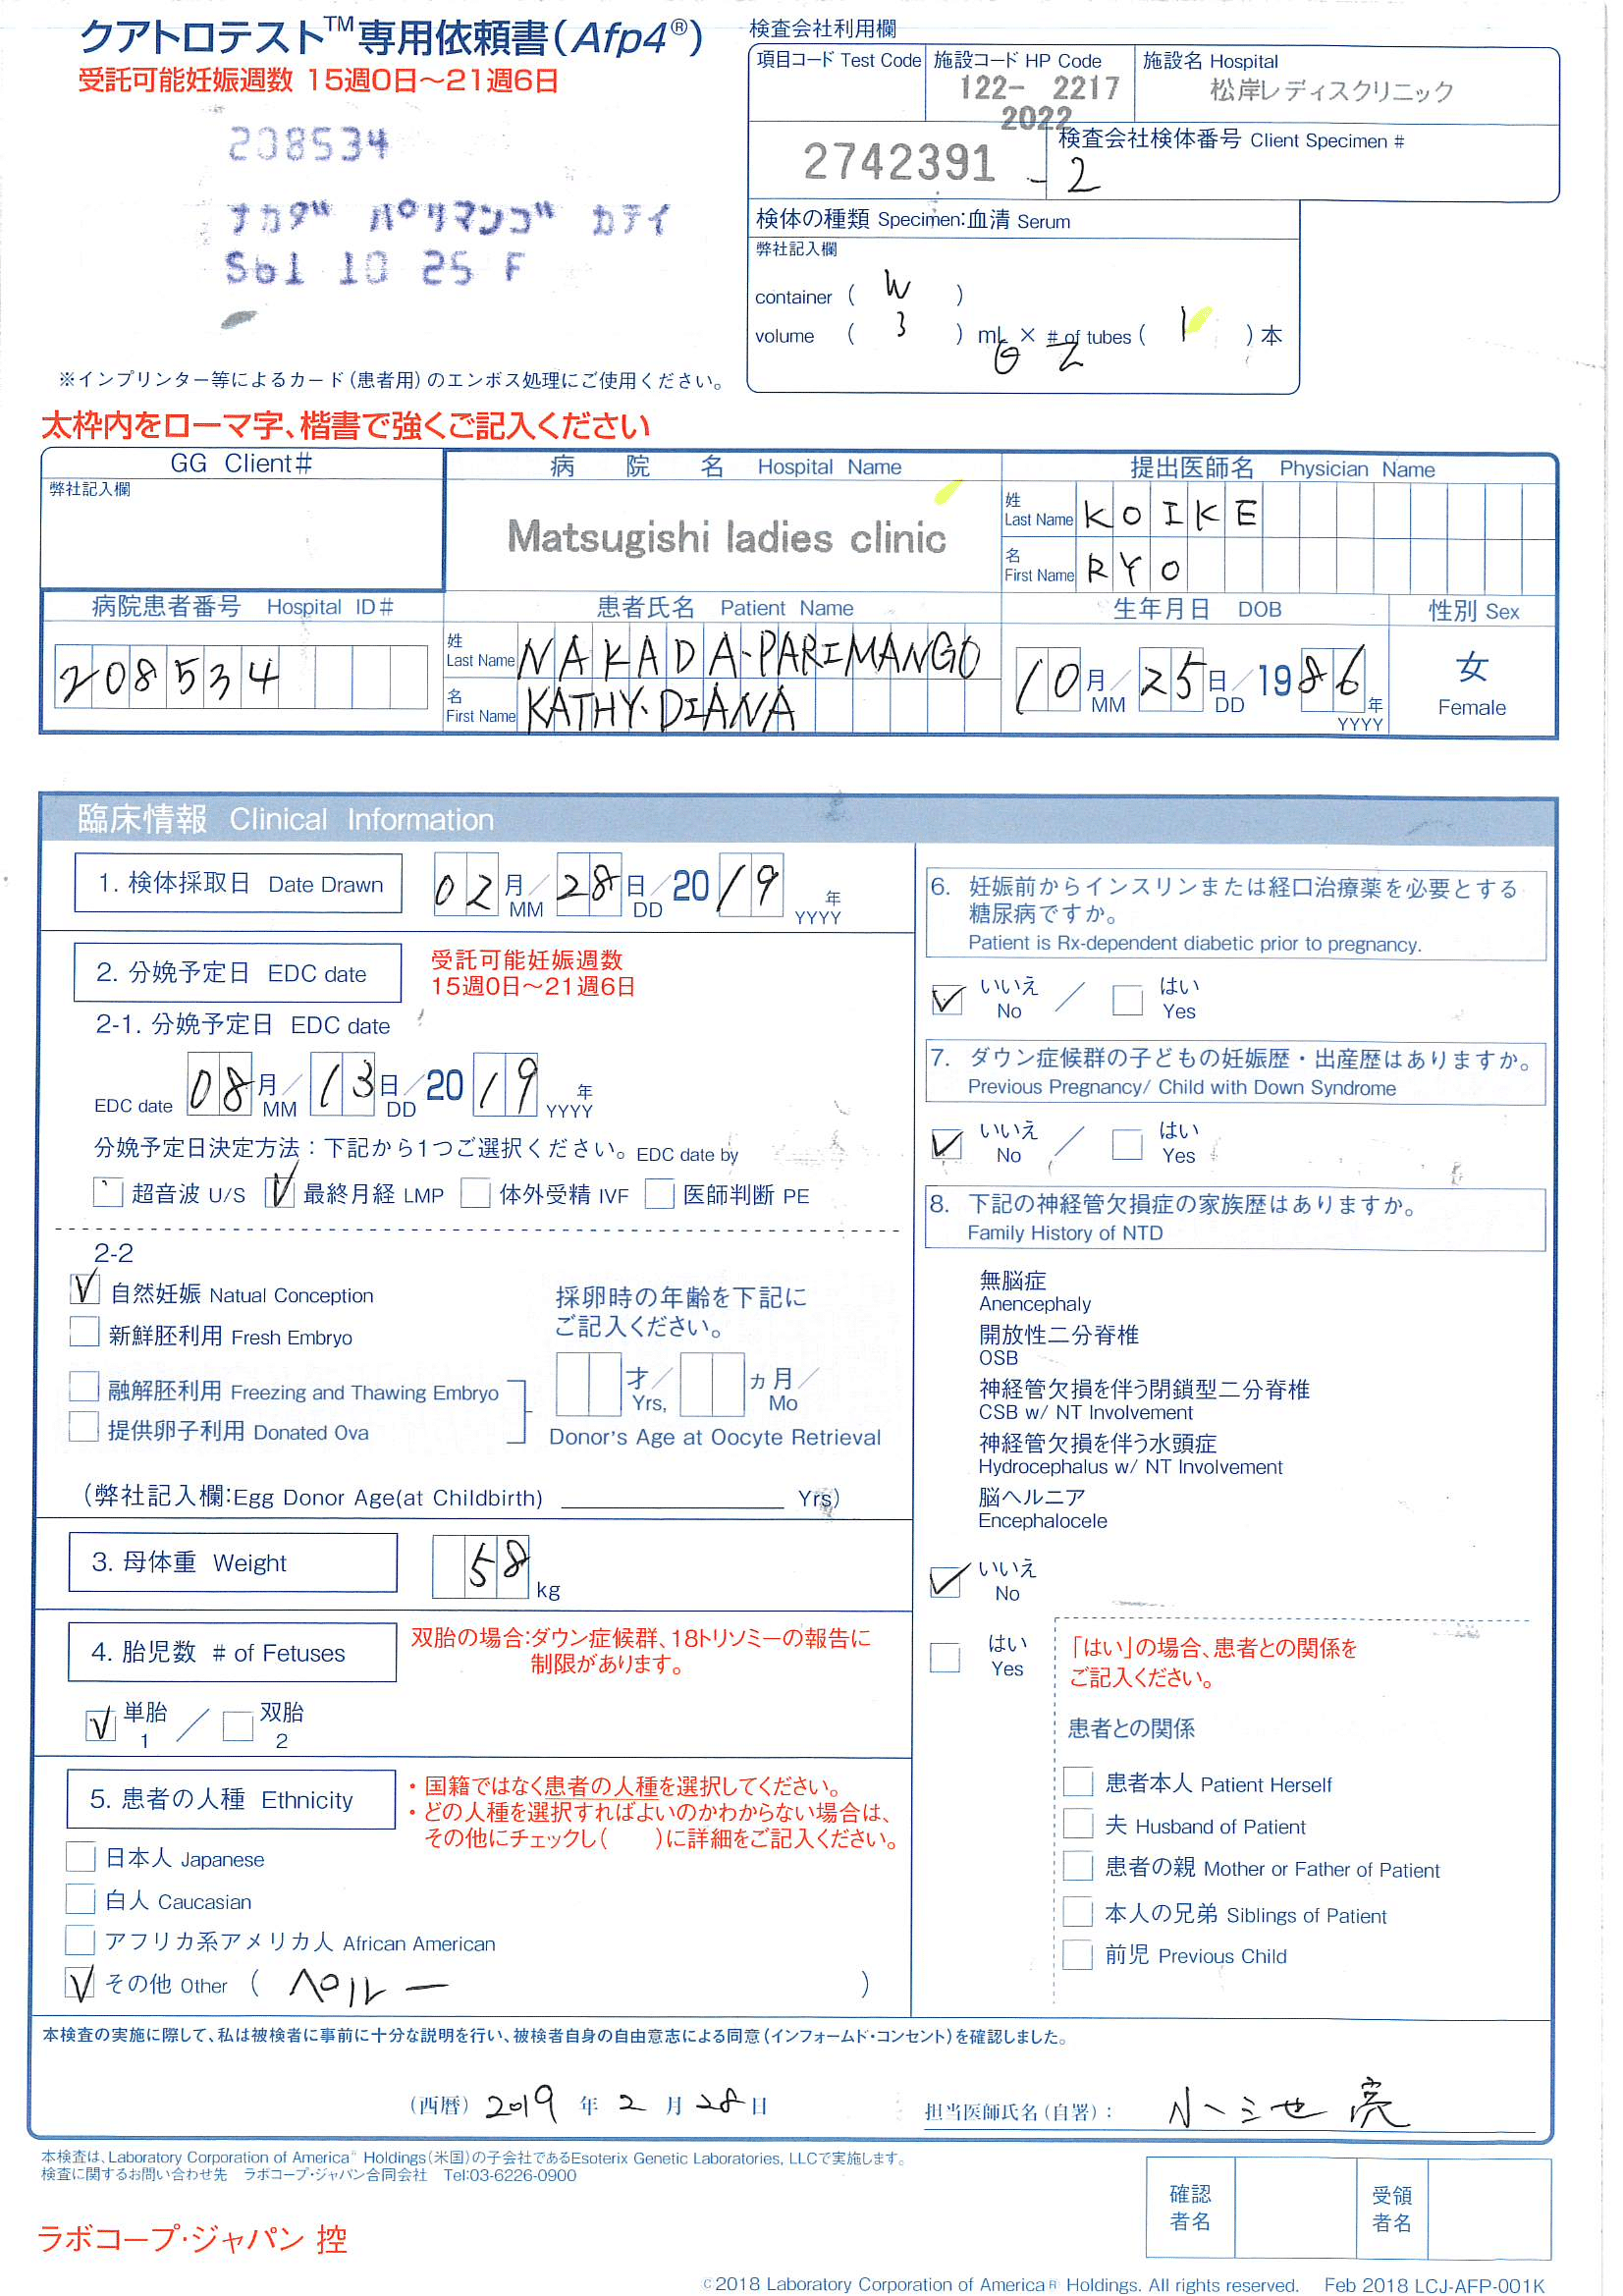 クアトロテスト™専用依頼書(Afp4®)
受託可能妊娠週数 15週0日～21週6日
208534
ナカダ パリマンゴ カテイ
S61 10 25 F
※インプリンター等によるカード(患者用)のエンボス処理にご使用ください。
検査会社利用欄
項目コード Test Code
施設コード HP Code
122- 2217
2022
施設名 Hospital
松岸レディスクリニック
2742391 -2
検査会社検体番号 Client Specimen #
検体の種類 Specimen:血清 Serum
弊社記入欄
container ( W )
volume ( 3 ) mL × # of tubes ( 1 ) 本
太枠内をローマ字、楷書で強くご記入ください
GG Client#
弊社記入欄
病院名 Hospital Name
Matsugishi ladies clinic
提出医師名 Physician Name
姓 Last Name KOIKE
名 First Name RYO
病院患者番号 Hospital ID#
208534
患者氏名 Patient Name
姓 Last Name NAKADA-PARIMANGO
名 First Name KATHY·DIANA
生年月日 DOB
10月/25日/1986年
MM DD YYYY
性別 Sex
女
Female
臨床情報 Clinical Information
1. 検体採取日 Date Drawn
02月/28日/2019年
MM DD YYYY
2. 分娩予定日 EDC date
受託可能妊娠週数
15週0日～21週6日
2-1. 分娩予定日 EDC date
EDC date 08月/13日/2019年
MM DD YYYY
分娩予定日決定方法：下記から1つご選択ください。EDC date by
超音波 U/S 最終月経 LMP 体外受精 IVF 医師判断 PE
2-2
自然妊娠 Natual Conception
新鮮胚利用 Fresh Embryo
融解胚利用 Freezing and Thawing Embryo
提供卵子利用 Donated Ova
採卵時の年齢を下記に
ご記入ください。
才/ ヵ月/
Yrs, Mo
Donor's Age at Oocyte Retrieval
(弊社記入欄:Egg Donor Age(at Childbirth) Yrs)
3. 母体重 Weight
58 kg
4. 胎児数 # of Fetuses
双胎の場合:ダウン症候群、18トリソミーの報告に
制限があります。
単胎 / 双胎
1 2
5. 患者の人種 Ethnicity
・国籍ではなく患者の人種を選択してください。
・どの人種を選択すればよいのかわからない場合は、
その他にチェックし( )に詳細をご記入ください。
日本人 Japanese
白人 Caucasian
アフリカ系アメリカ人 African American
その他 Other ( ペルー )
6. 妊娠前からインスリンまたは経口治療薬を必要とする
糖尿病ですか。
Patient is Rx-dependent diabetic prior to pregnancy.
いいえ / はい
No Yes
7. ダウン症候群の子どもの妊娠歴・出産歴はありますか。
Previous Pregnancy/ Child with Down Syndrome
いいえ / はい
No Yes
8. 下記の神経管欠損症の家族歴はありますか。
Family History of NTD
無脳症
Anencephaly
開放性二分脊椎
OSB
神経管欠損を伴う閉鎖型二分脊椎
CSB w/ NT Involvement
神経管欠損を伴う水頭症
Hydrocephalus w/ NT Involvement
脳ヘルニア
Encephalocele
いいえ
No
はい
Yes
「はい」の場合、患者との関係を
ご記入ください。
患者との関係
患者本人 Patient Herself
夫 Husband of Patient
患者の親 Mother or Father of Patient
本人の兄弟 Siblings of Patient
前児 Previous Child
本検査の実施に際して、私は被検者に事前に十分な説明を行い、被検者自身の自由意志による同意(インフォームド・コンセント)を確認しました。
(西暦) 2019 年 2 月 28 日
担当医師氏名(自署)： 小池 亮
本検査は、Laboratory Corporation of America® Holdings(米国)の子会社であるEsoterix Genetic Laboratories, LLCで実施します。
検査に関するお問い合わせ先 ラボコープ・ジャパン合同会社 Tel:03-6226-0900
確認者名
受領者名
ラボコープ・ジャパン 控
©2018 Laboratory Corporation of America® Holdings. All rights reserved. Feb 2018 LCJ-AFP-001K